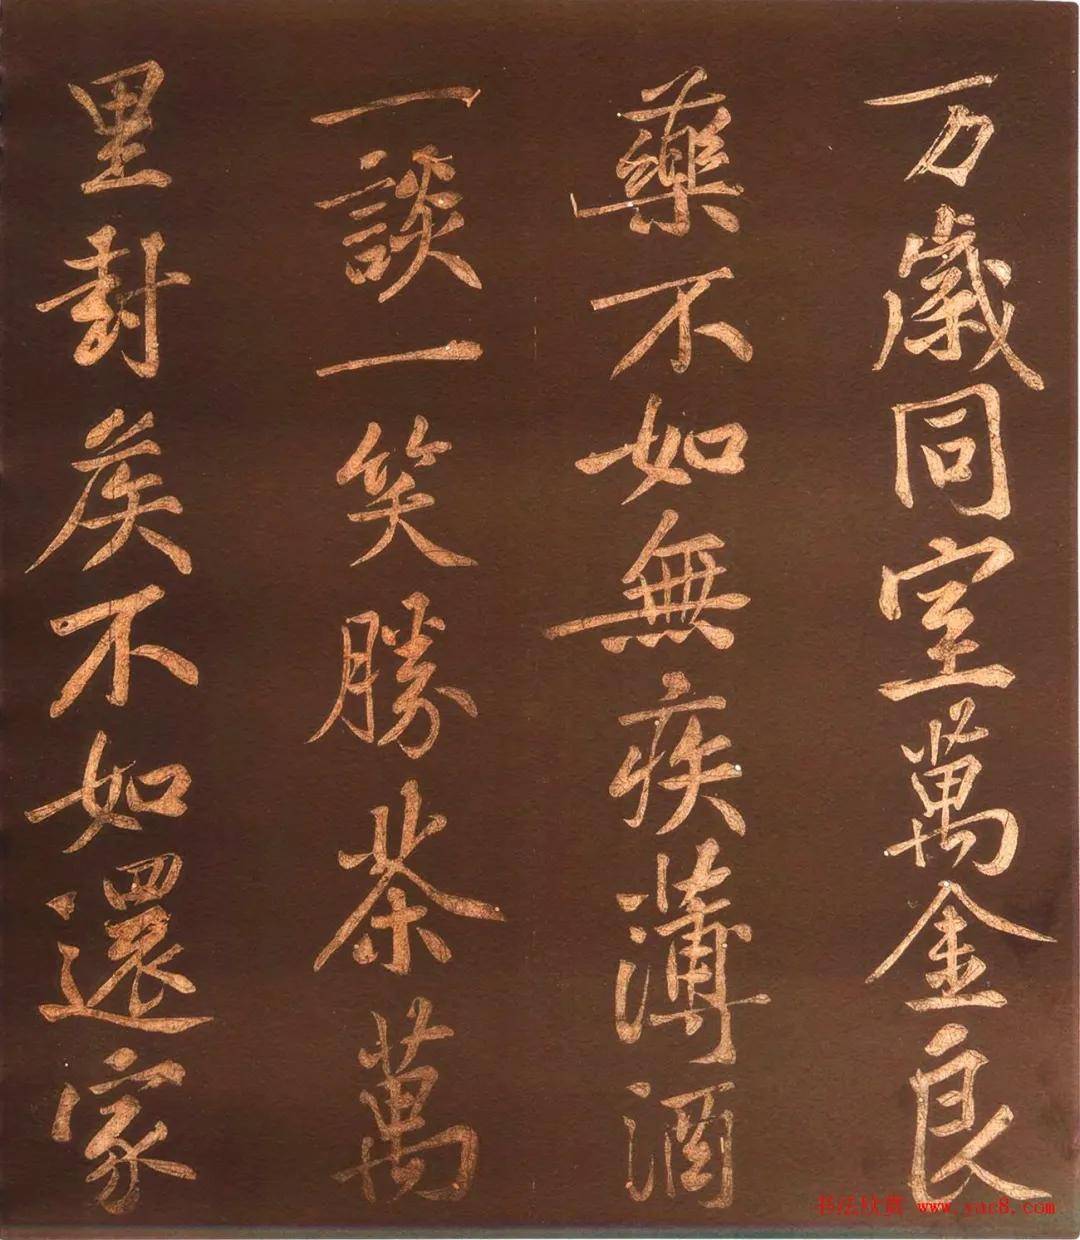 万歲同室萬金良
藥不如無疾薄酒
一談一笑勝茶萬
里封侯不如還家
书法欣赏 www.yac8.com